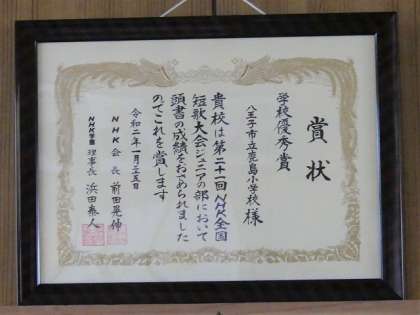 賞状
学校優秀賞
八王子市立鹿島小学校様
貴校は第二十一回NHK全国
短歌大会ジュニアの部において
頭書の成績をおさめられました
のでこれを賞します
令和二年一月二十五日
NHK会長 前田晃伸
NHK学園 理事長 浜田泰人